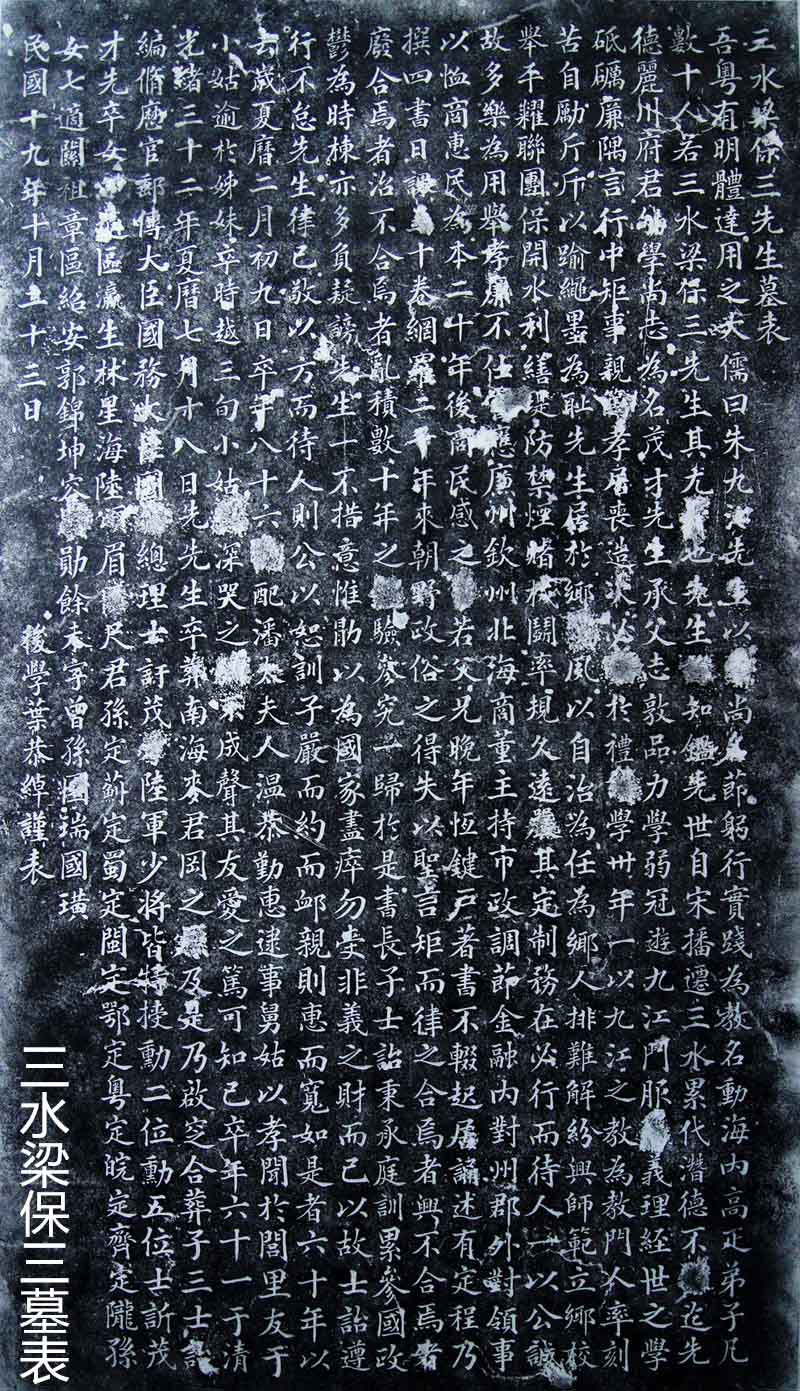 三水梁保三先生墓表
吾粵有明體達用之大儒曰朱九江先生以尚名節躬行實踐為敎名動海內高疋弟子凡
數十人若三水梁保三先生其尤也先生知鑑先世自宋播遷三水累代潛德不迄先
德麗川府君績學尚志為名茂才先生承父志敦品力學弱冠遊九江門服義理經世之學
砥礪廉隅言行中矩事親孝居喪造次必於禮學卅年一以九江之敎為敎門人率刻
苦自勵斤斤以踰繩墨為恥先生居於鄉風以自治為任為鄉人排難解紛興師範立鄉校
舉平糶聯團保開水利繕堤防禁煙賭械鬭率規久遠其定制務在必行而待人一以公誠
故多樂為用舉孝廉不仕應廣州欽州北海商董主持市政調節金融內對州郡外對領事
以恤商惠民為本二十年後商民感之若父兄晚年恆鍵戶著書不輟起居誦述有定程乃
撰四書日課五十卷網羅二千年來朝野政俗之得失以聖言矩而律之合焉者興不合焉者
廢合焉者治不合焉者亂積數十年之驗參究一歸於是書長子士詒秉承庭訓累參國政
鬱為時棟亦多負疑謗先生一不措意惟勖以為國家盡瘁勿妄非義之財而已以故士詒遵
行不怠先生律己敬以方而待人則公以恕訓子嚴而約而卹親則惠而寬如是者六十年以
去歲夏曆二月初九日卒年八十六配潘太夫人溫恭勤惠逮事舅姑以孝聞於閭里友于
小姑逾於姊妹卒時越三旬小姑深哭之不成聲其友愛之篤可知已卒年六十一于清
光緒三十二年夏曆七月十八日先先生卒葬南海麥君岡之及是乃啟窆合葬子三士詒
編脩歷官郵傳大臣國務大臣國總理士訏茂陸軍少將皆特授勳二位勳五位士訢茂
才先卒女適區瀛生林星海陸頌眉尺君孫定薊定蜀定閩定鄂定粵定皖定齊定隴孫
女七適關祖章區紹安郭錦坤容勛餘未字曾孫國瑞國璜
民國十九年十月二十三日
後學葉恭綽謹表
三水梁保三墓表